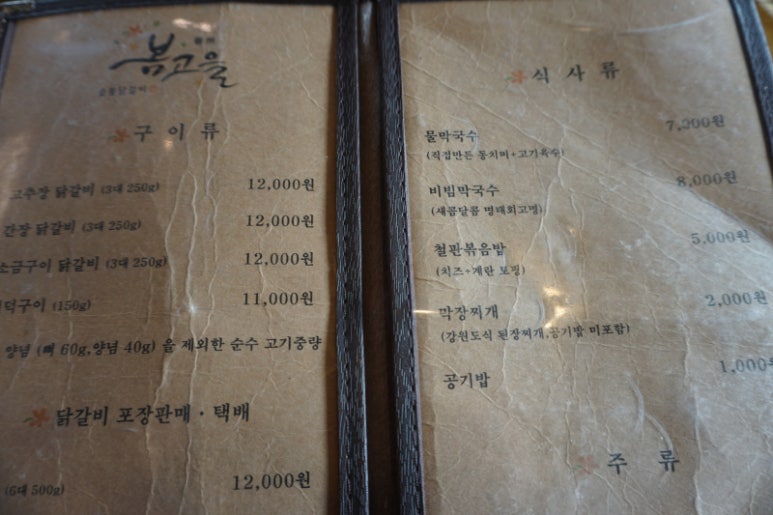 봄고을
숯불닭갈비
구이류
고추장 닭갈비 (3대 250g) 12,000원
간장 닭갈비 (3대 250g) 12,000원
소금구이 닭갈비 (3대 250g) 12,000원
더덕구이 (150g) 11,000원
양념 (뼈 60g,양념 40g) 을 제외한 순수 고기중량
닭갈비 포장판매 · 택배
(6대 500g) 12,000원
식사류
물막국수 7,000원
(직접만든 동치미+고기육수)
비빔막국수 8,000원
(새콤달콤 명태회고명)
철판볶음밥 5,000원
(치즈+계란 토핑)
막장찌개 2,000원
(강원도식 된장찌개,공기밥 미포함)
공기밥 1,000
주류